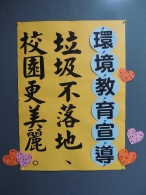 環境教育宣導
垃圾不落地、
校園更美麗。